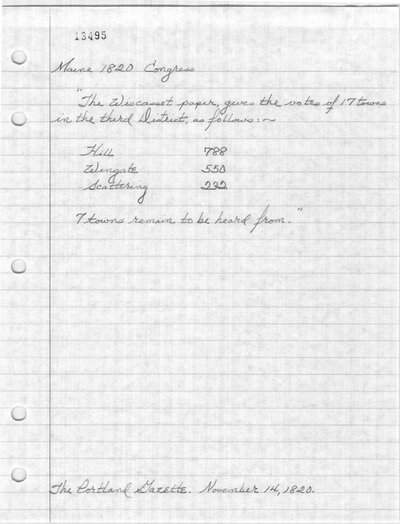 13495
Maine 1820 Congress
"The Wiscasset paper, gives the votes of 17 towns
in the third District, as follows:~
Hill 788
Wingate 550
Scattering 232
7 towns remain to be heard from."
The Portland Gazette. November 14, 1820.